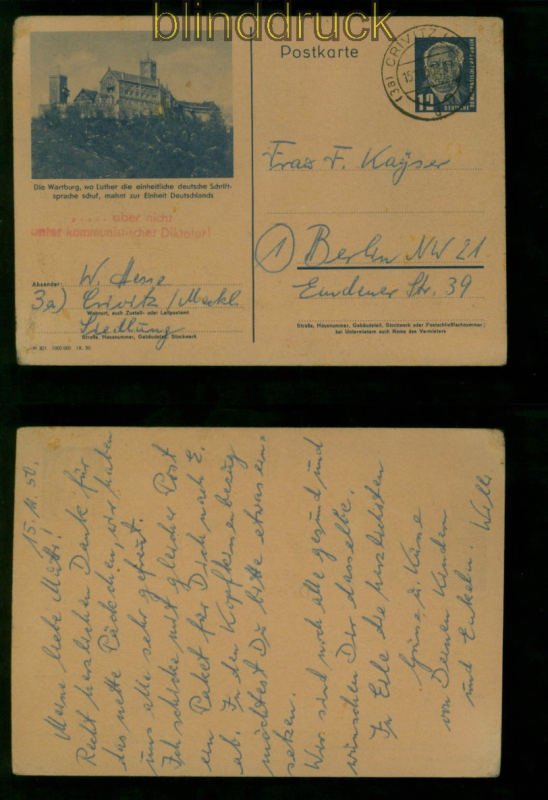 blinddruck
Postkarte
(3a) CRIVITZ
15
12
Die Wartburg, wo Luther die einheitliche deutsche Schrift-
sprache schuf, mahnt zur Einheit Deutschlands
..... aber nicht
unter kommunistischer Diktatur!
Frau F. Kayser
1 Berlin NW 21
Emdener Str. 39
Absender: W. Hesse
3a) Crivitz / Meckl.
Wohnort, auch Zustell- oder Leitpostamt
Siedlung
Straße, Hausnummer, Gebäudeteil, Stockwerk
Straße, Hausnummer, Gebäudeteil, Stockwerk oder Postschließfachnummer
bei Untermietern auch Name des Vermieters
15. 11. 50.
Meine liebe Mutti!
Recht herzlichen Dank für
das nette Päckchen, wir haben
uns alle sehr gefreut.
Ich schicke mit gleicher Post
ein Paket für Dich nach E.
ab. In den Kopfkissenbezug
möchtest Du bitte etwas ein-
setzen.
Wir sind noch alle gesund und
wünschen Dir dasselbe.
In Eile die herzlichsten
Grüße u. Küsse
von Deinen Kindern
und Enkeln. Willi